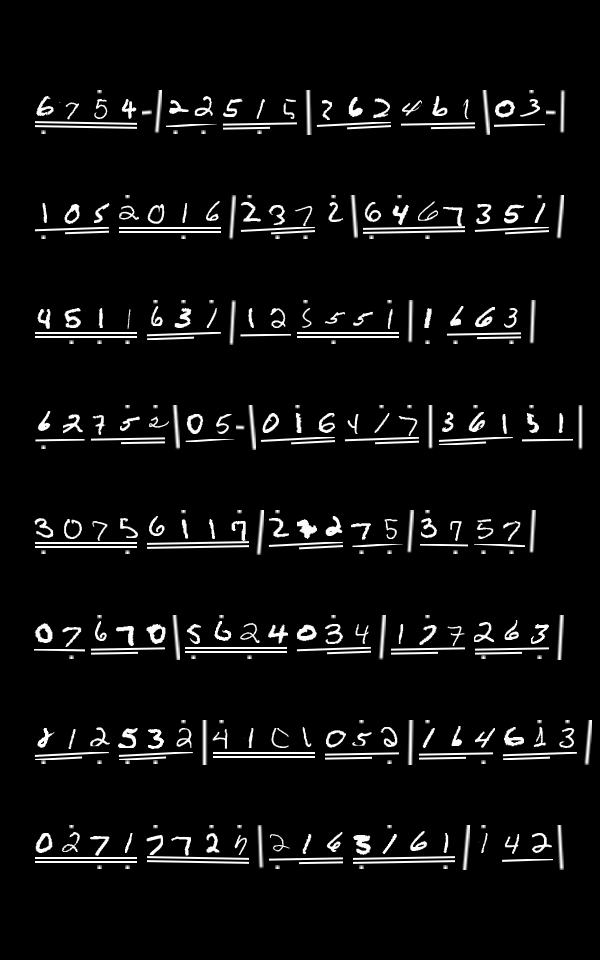 6 7 5 4 - | 2 2 5 1 5 | 2 6 2 4 6 1 | 0 3 - |
1 0 5 2 0 1 6 | 2 3 7 2 | 6 4 6 7 3 5 1 |
4 5 1 1 6 3 1 | 1 2 5 5 5 1 | 1 6 6 3 |
6 2 7 5 2 | 0 5 - | 0 1 6 4 1 7 | 3 6 1 5 1 |
3 0 7 5 6 1 1 7 | 2 2 2 7 5 | 3 7 5 7 |
0 7 6 7 0 | 5 6 2 4 0 3 4 | 1 7 7 2 6 3 |
2 1 2 5 3 2 | 4 1 0 1 0 5 2 | 1 6 4 6 1 3 |
0 2 7 1 7 7 2 7 | 2 1 6 5 1 6 1 | 1 4 2 |